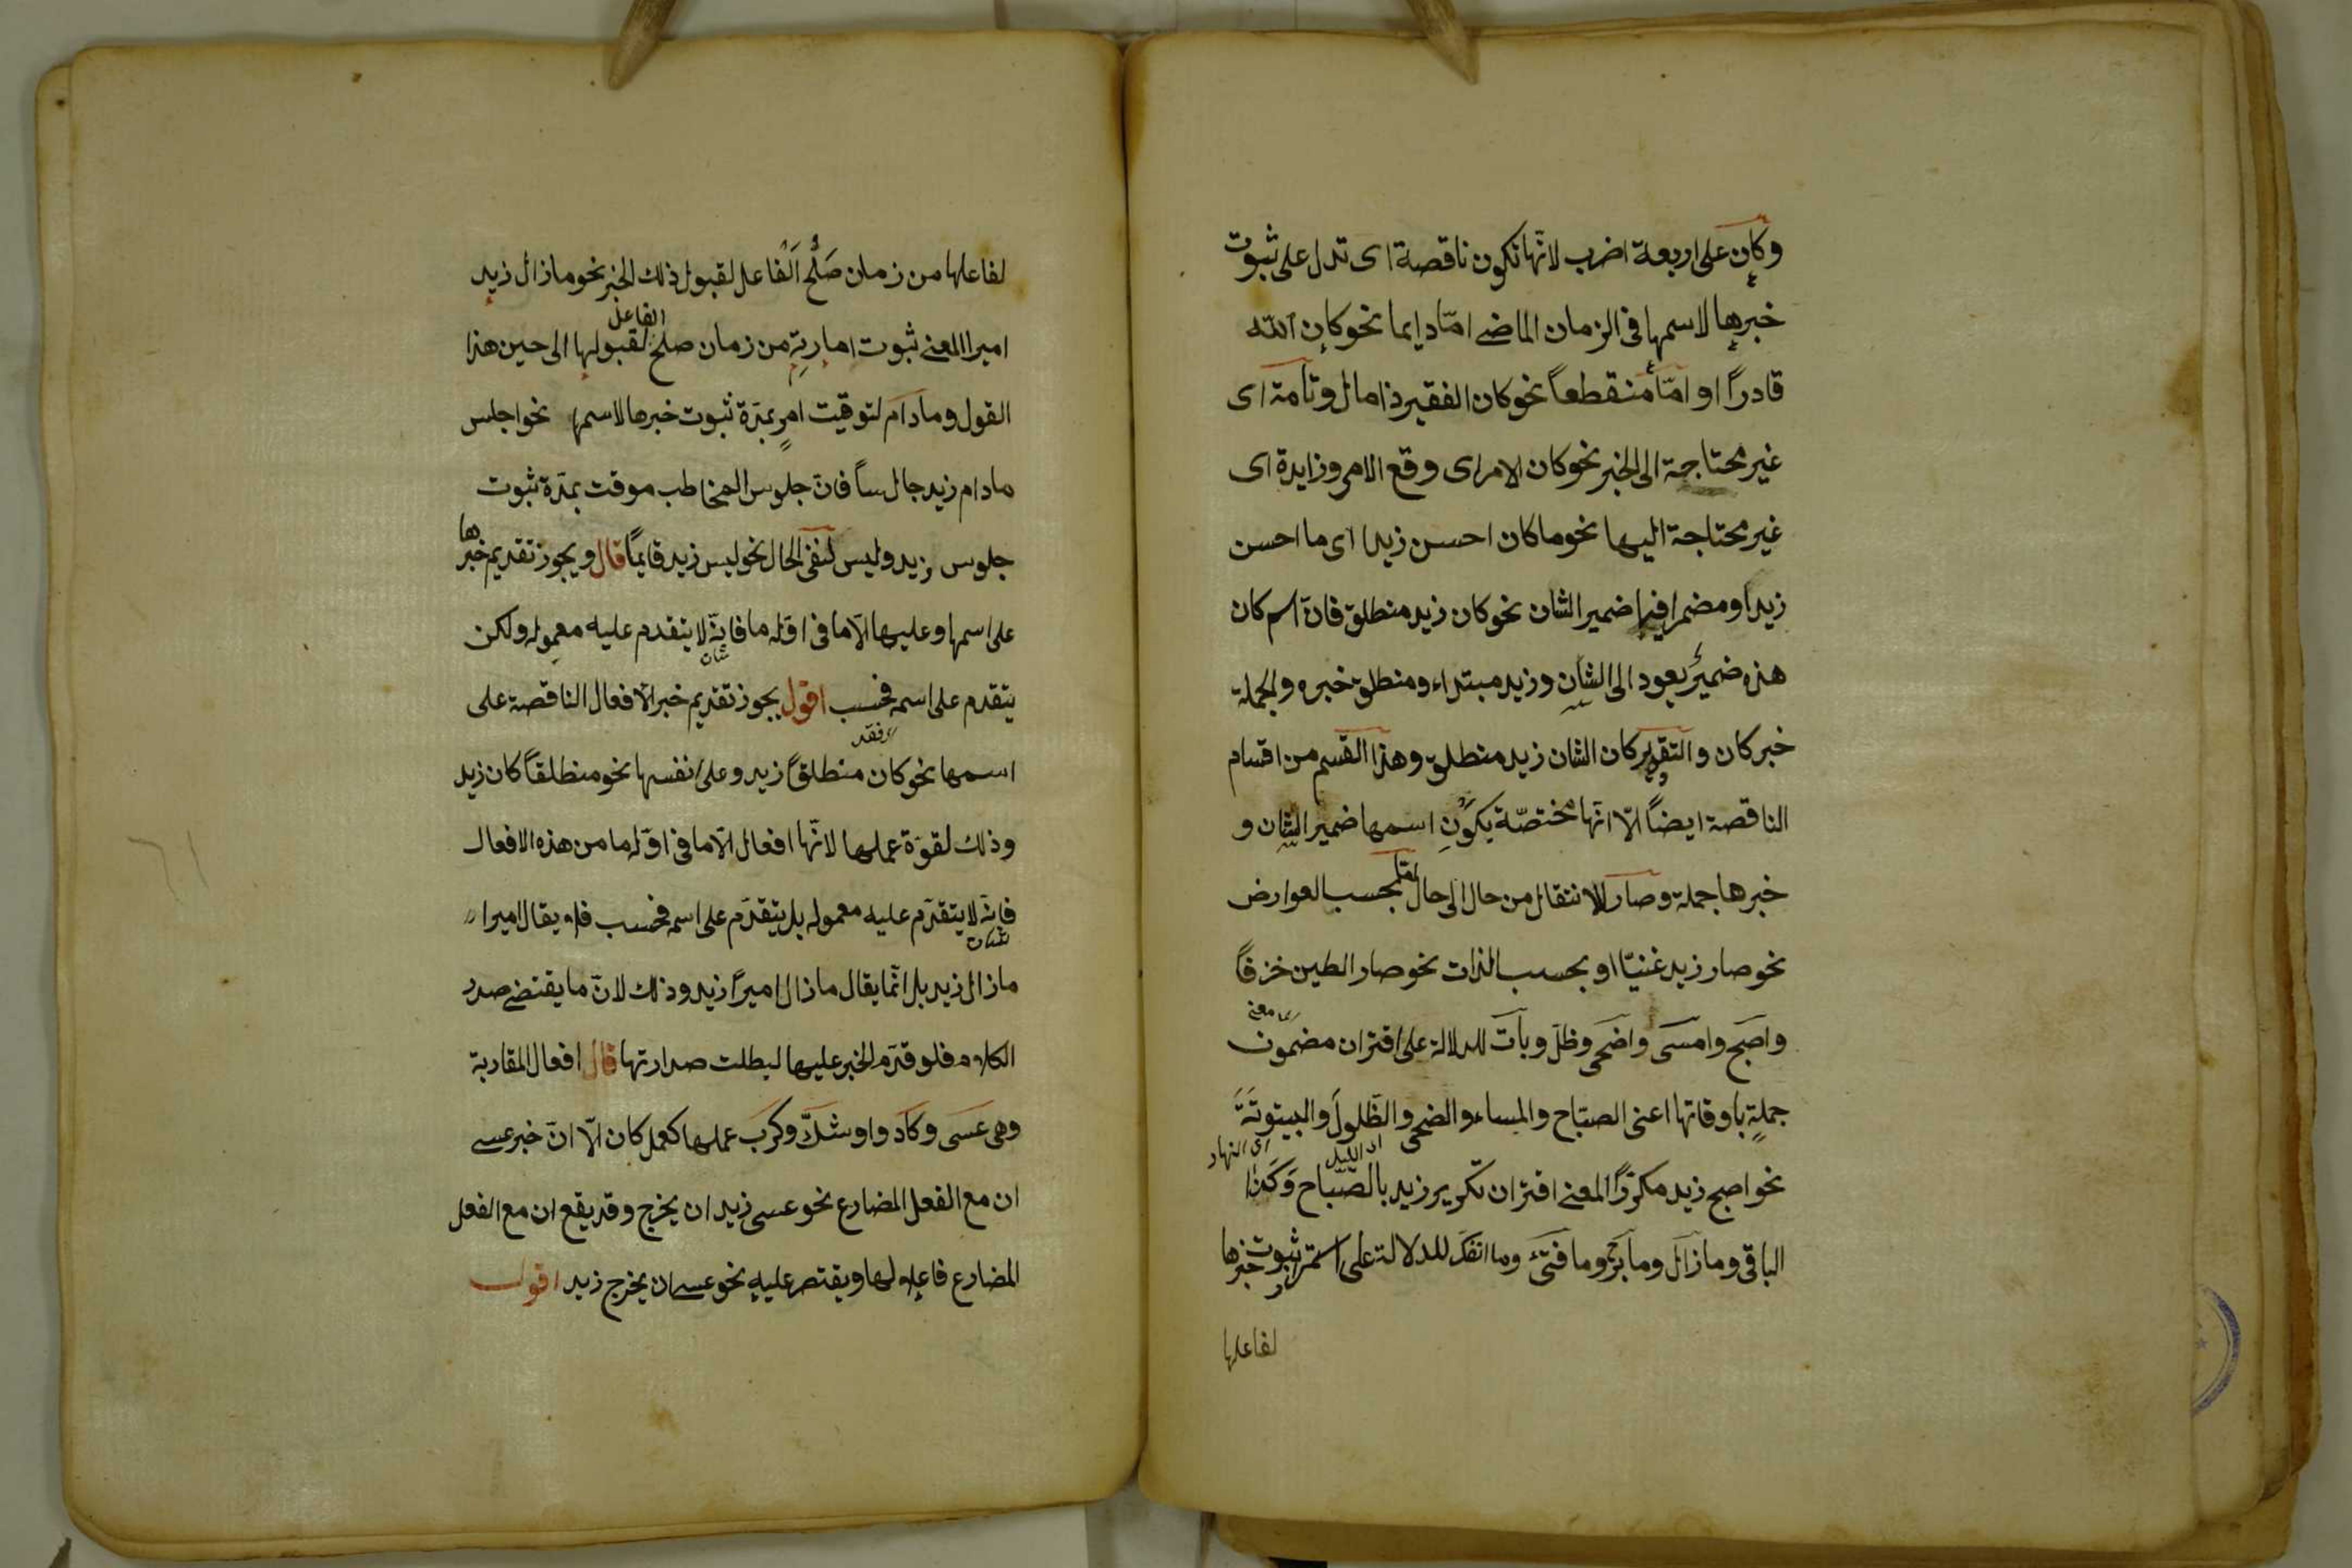 وكان على اربعة اضرب لانّها تكون ناقصة اى تدل على ثبوت
خبرها لاسمها فى الزمان الماضے امّا دايما نحو كان الله
قادراً او امّا منقطعاً نحو كان الفقير ذا مال وتامة اى
غير محتاجة الى الخبر نحو كان الامر اى وقع الامر وزايدة اى
غير محتاجة اليها نحو ما كان احسن زيدا اى ما احسن
زيداً ومضمرا فيها ضمير الشان نحو كان زيد منطلق فانّ اسم كان
هذه ضميرٌ يعود الى الشان وزيد مبتداء ومنطلق خبره والجملة
خبر كان والتقدير كان الشان زيد منطلق وهذا القسم من اقسام
الناقصة ايضاً الّا انّها مختصّة بكون اسمها ضمير الشان و
خبرها جملة وصار للانتقال من حال الى حال بحسب العوارض
نحو صار زيد غنيّا او بحسب الذات نحو صار الطين خزفاً
اى معنى
واصبح وامسى واضحى وظلّ وبات للدلالة على اقتران مضمون
جملةٍ باوقاتها اعنى الصباح والمساء والضحى والظّلول والبيتوتة
اى الليل اى النهار
نحو اصبح زيد مكرّراً المعنے اقتران تكرير زيد بالصّباح وكذا
الباقى وما زال وما برح وما فتئ وما انفكّ للدلالة على استمرار ثبوت خبرها
لفاعلها
لفاعلها من زمان صَلُح الفاعل لقبول ذلك الخبر نحو ما زال زيد
الفاعل
اميرا المعنے ثبوت امارية من زمان صلح لقبولها الى حين هذا
القول وما دام لتوقيت امرٍ بمدّة ثبوت خبرها لاسمها نحو اجلس
ما دام زيد جالساً فانّ جلوس المخاطب موقت بمدّة ثبوت
جلوس زيد وليس لنفى الحال نحو ليس زيد قايماً قال ويجوز تقديم خبرها
على اسمها وعليها الّا ما فى اوّله ما فانّه لا يتقدم عليه معموله ولكن
شان
يتقدم على اسمه فحسب اقول يجوز تقديم خبر الافعال الناقصة على
اسمها نحو كان منطلقاً زيد وعلى نفسها نحو منطلقاً كان زيد
وذلك لقوّة عملها لانّها افعال الّا ما فى اوّله ما من هذه الافعال
فانّه لا يتقدّم عليه معموله بل يتقدّم على اسمه فحسب فلا يقال اميرا
شان
ما زال زيد بل انّما يقال ما زال اميراً زيد وذلك لانّ ما يقتضے صدر
الكلام فلو قدّم الخبر عليها لبطلت صدارتها قال افعال المقاربة
وهى عسى وكاد واوشك وكرب عملها كعمل كان الّا انّ خبر عسے
ان مع الفعل المضارع نحو عسى زيد ان يخرج وقد يقع ان مع الفعل
المضارع فاعله لها ويقتصر عليه نحو عسے ان يخرج زيد اقول